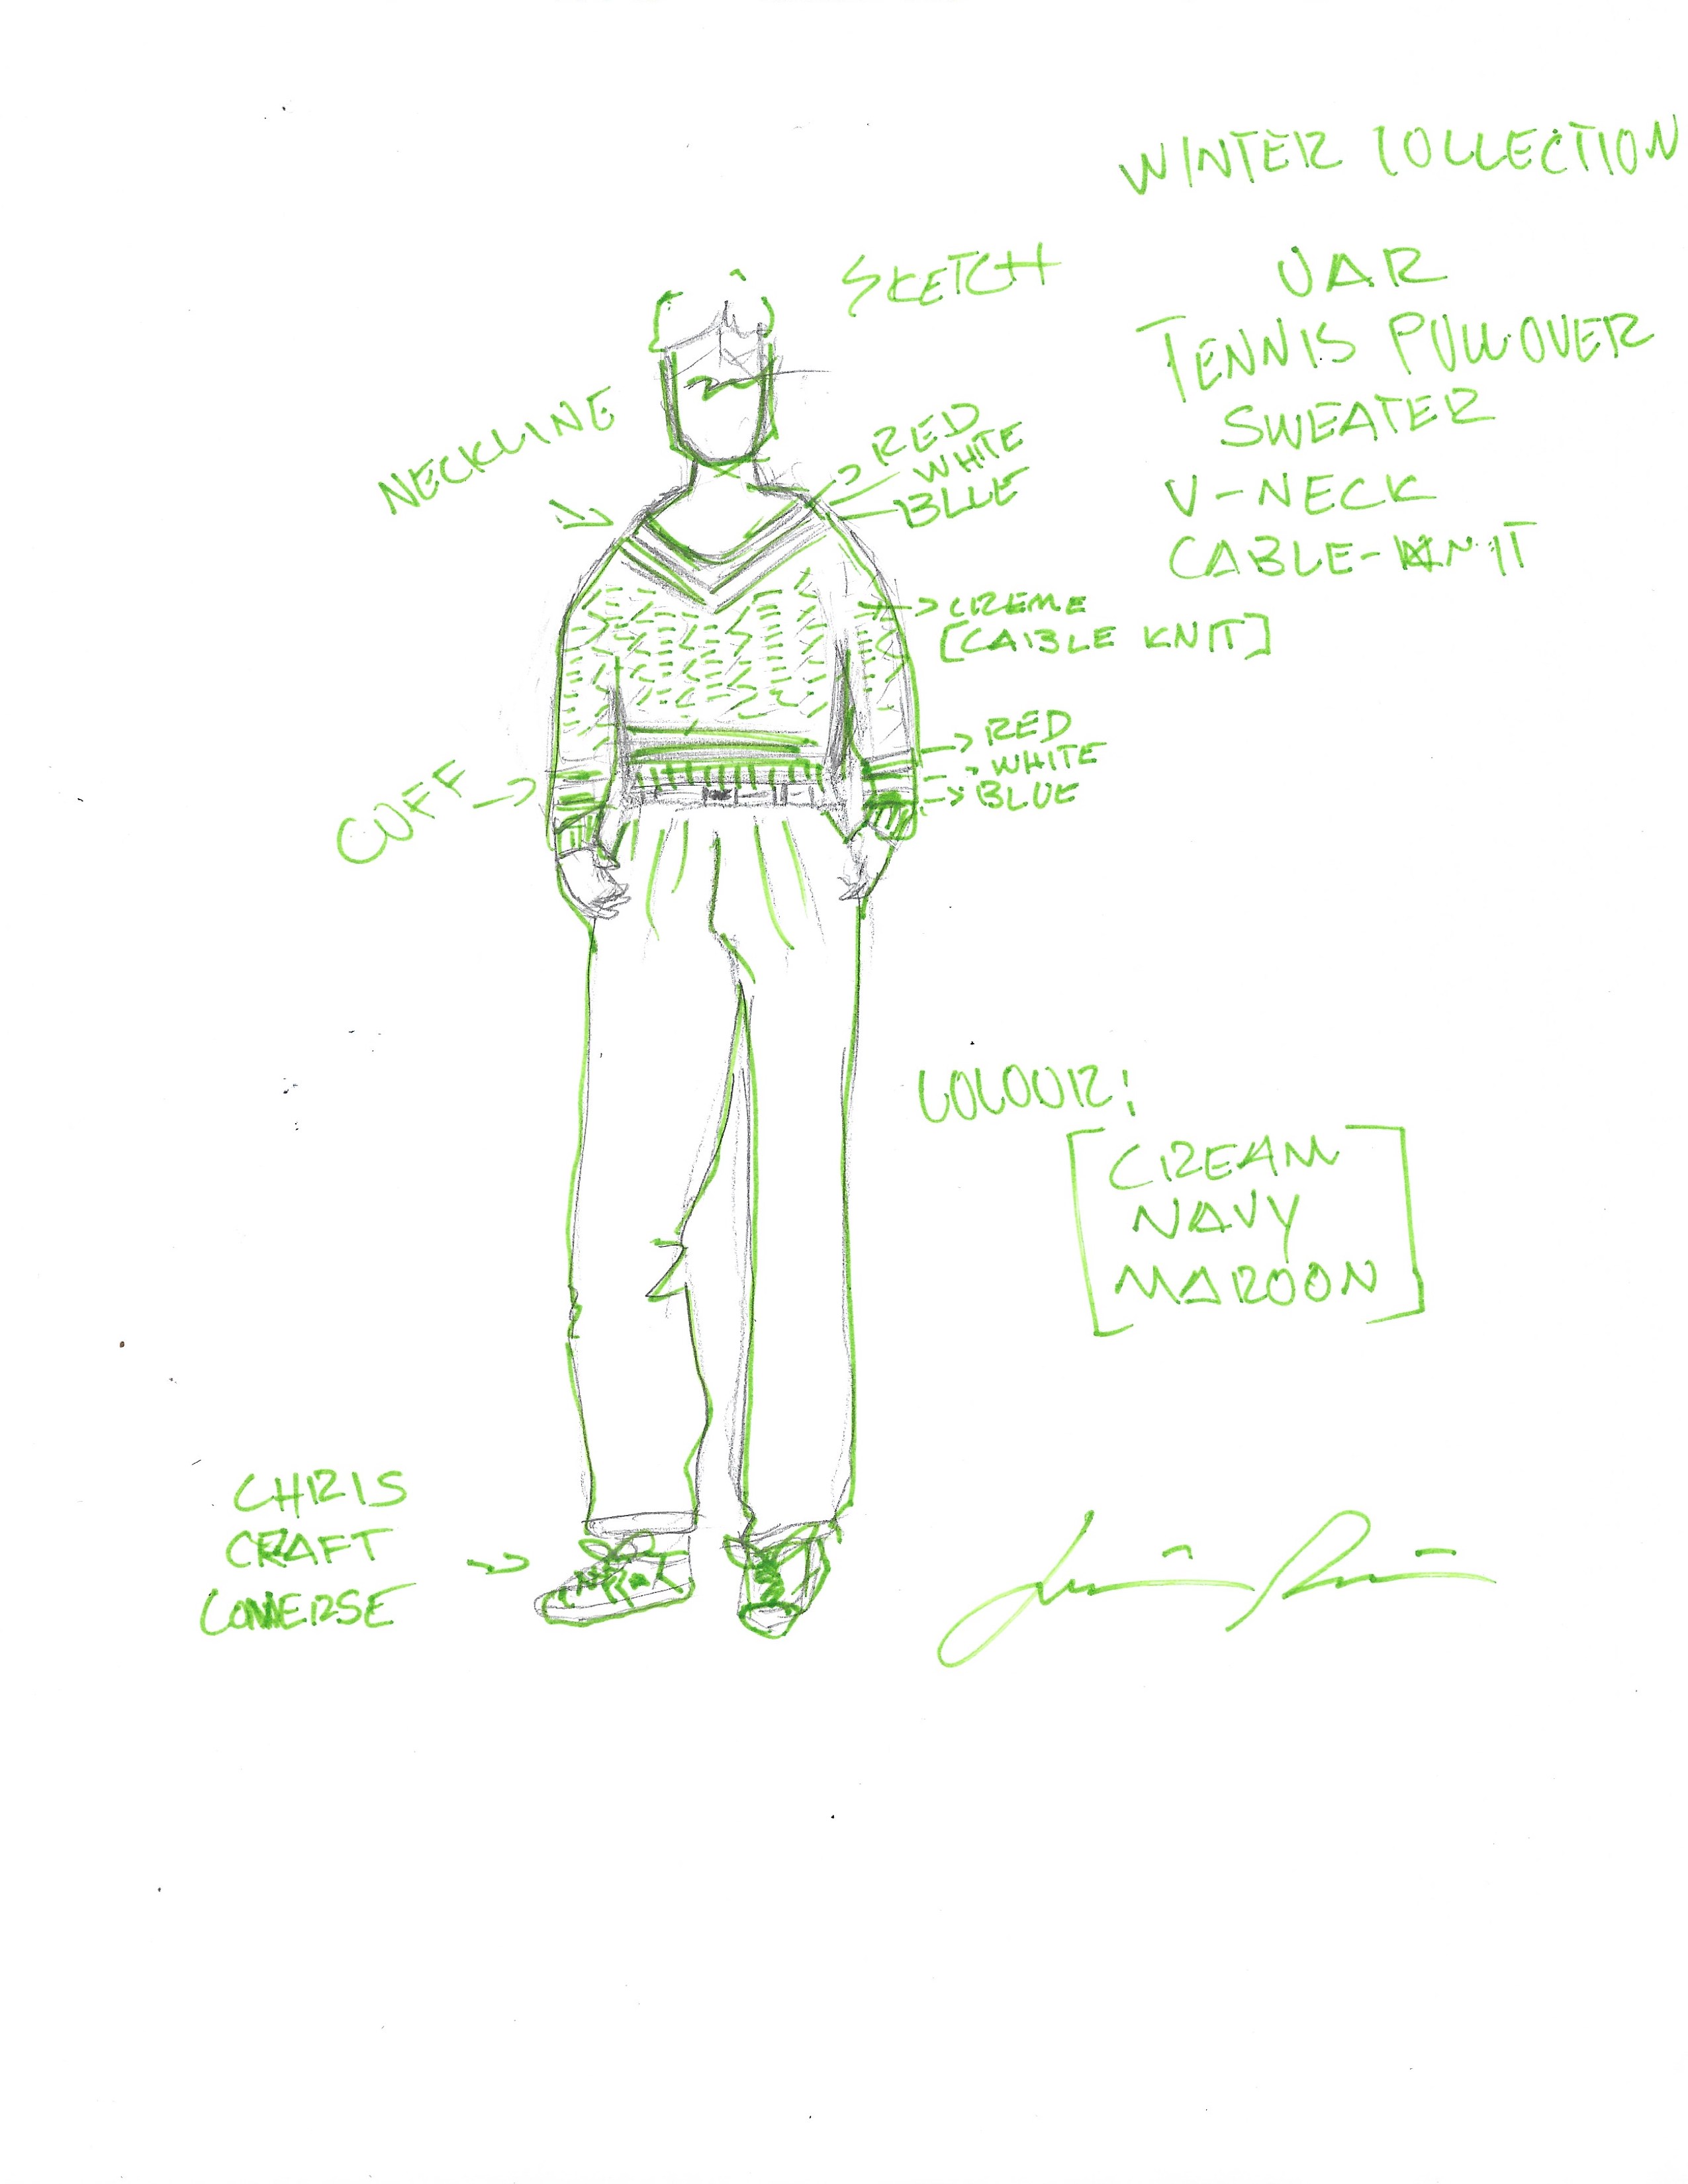 WINTER COLLECTION
SKETCH
UAR
TENNIS PULLOVER
SWEATER
V-NECK
CABLE-KNIT
NECKLINE
RED
WHITE
BLUE
CREME
[CABLE KNIT]
RED
WHITE
BLUE
CUFF
COLOUR:
[CREAM
NAVY
MAROON]
CHRIS
CRAFT
CONVERSE